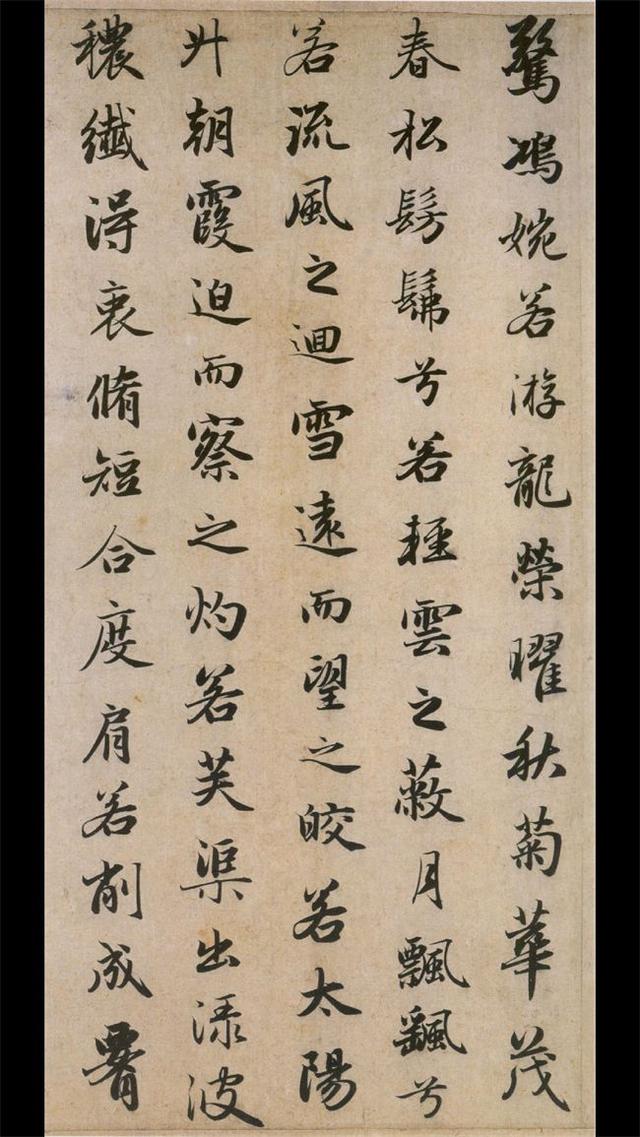 驚鴻婉若游龍榮曜秋菊華茂
春松髣髴兮若輕雲之蔽月飄颻兮
若流風之迴雪遠而望之皎若太陽
升朝霞迫而察之灼若芙渠出渌波
穠纖得衷脩短合度肩若削成